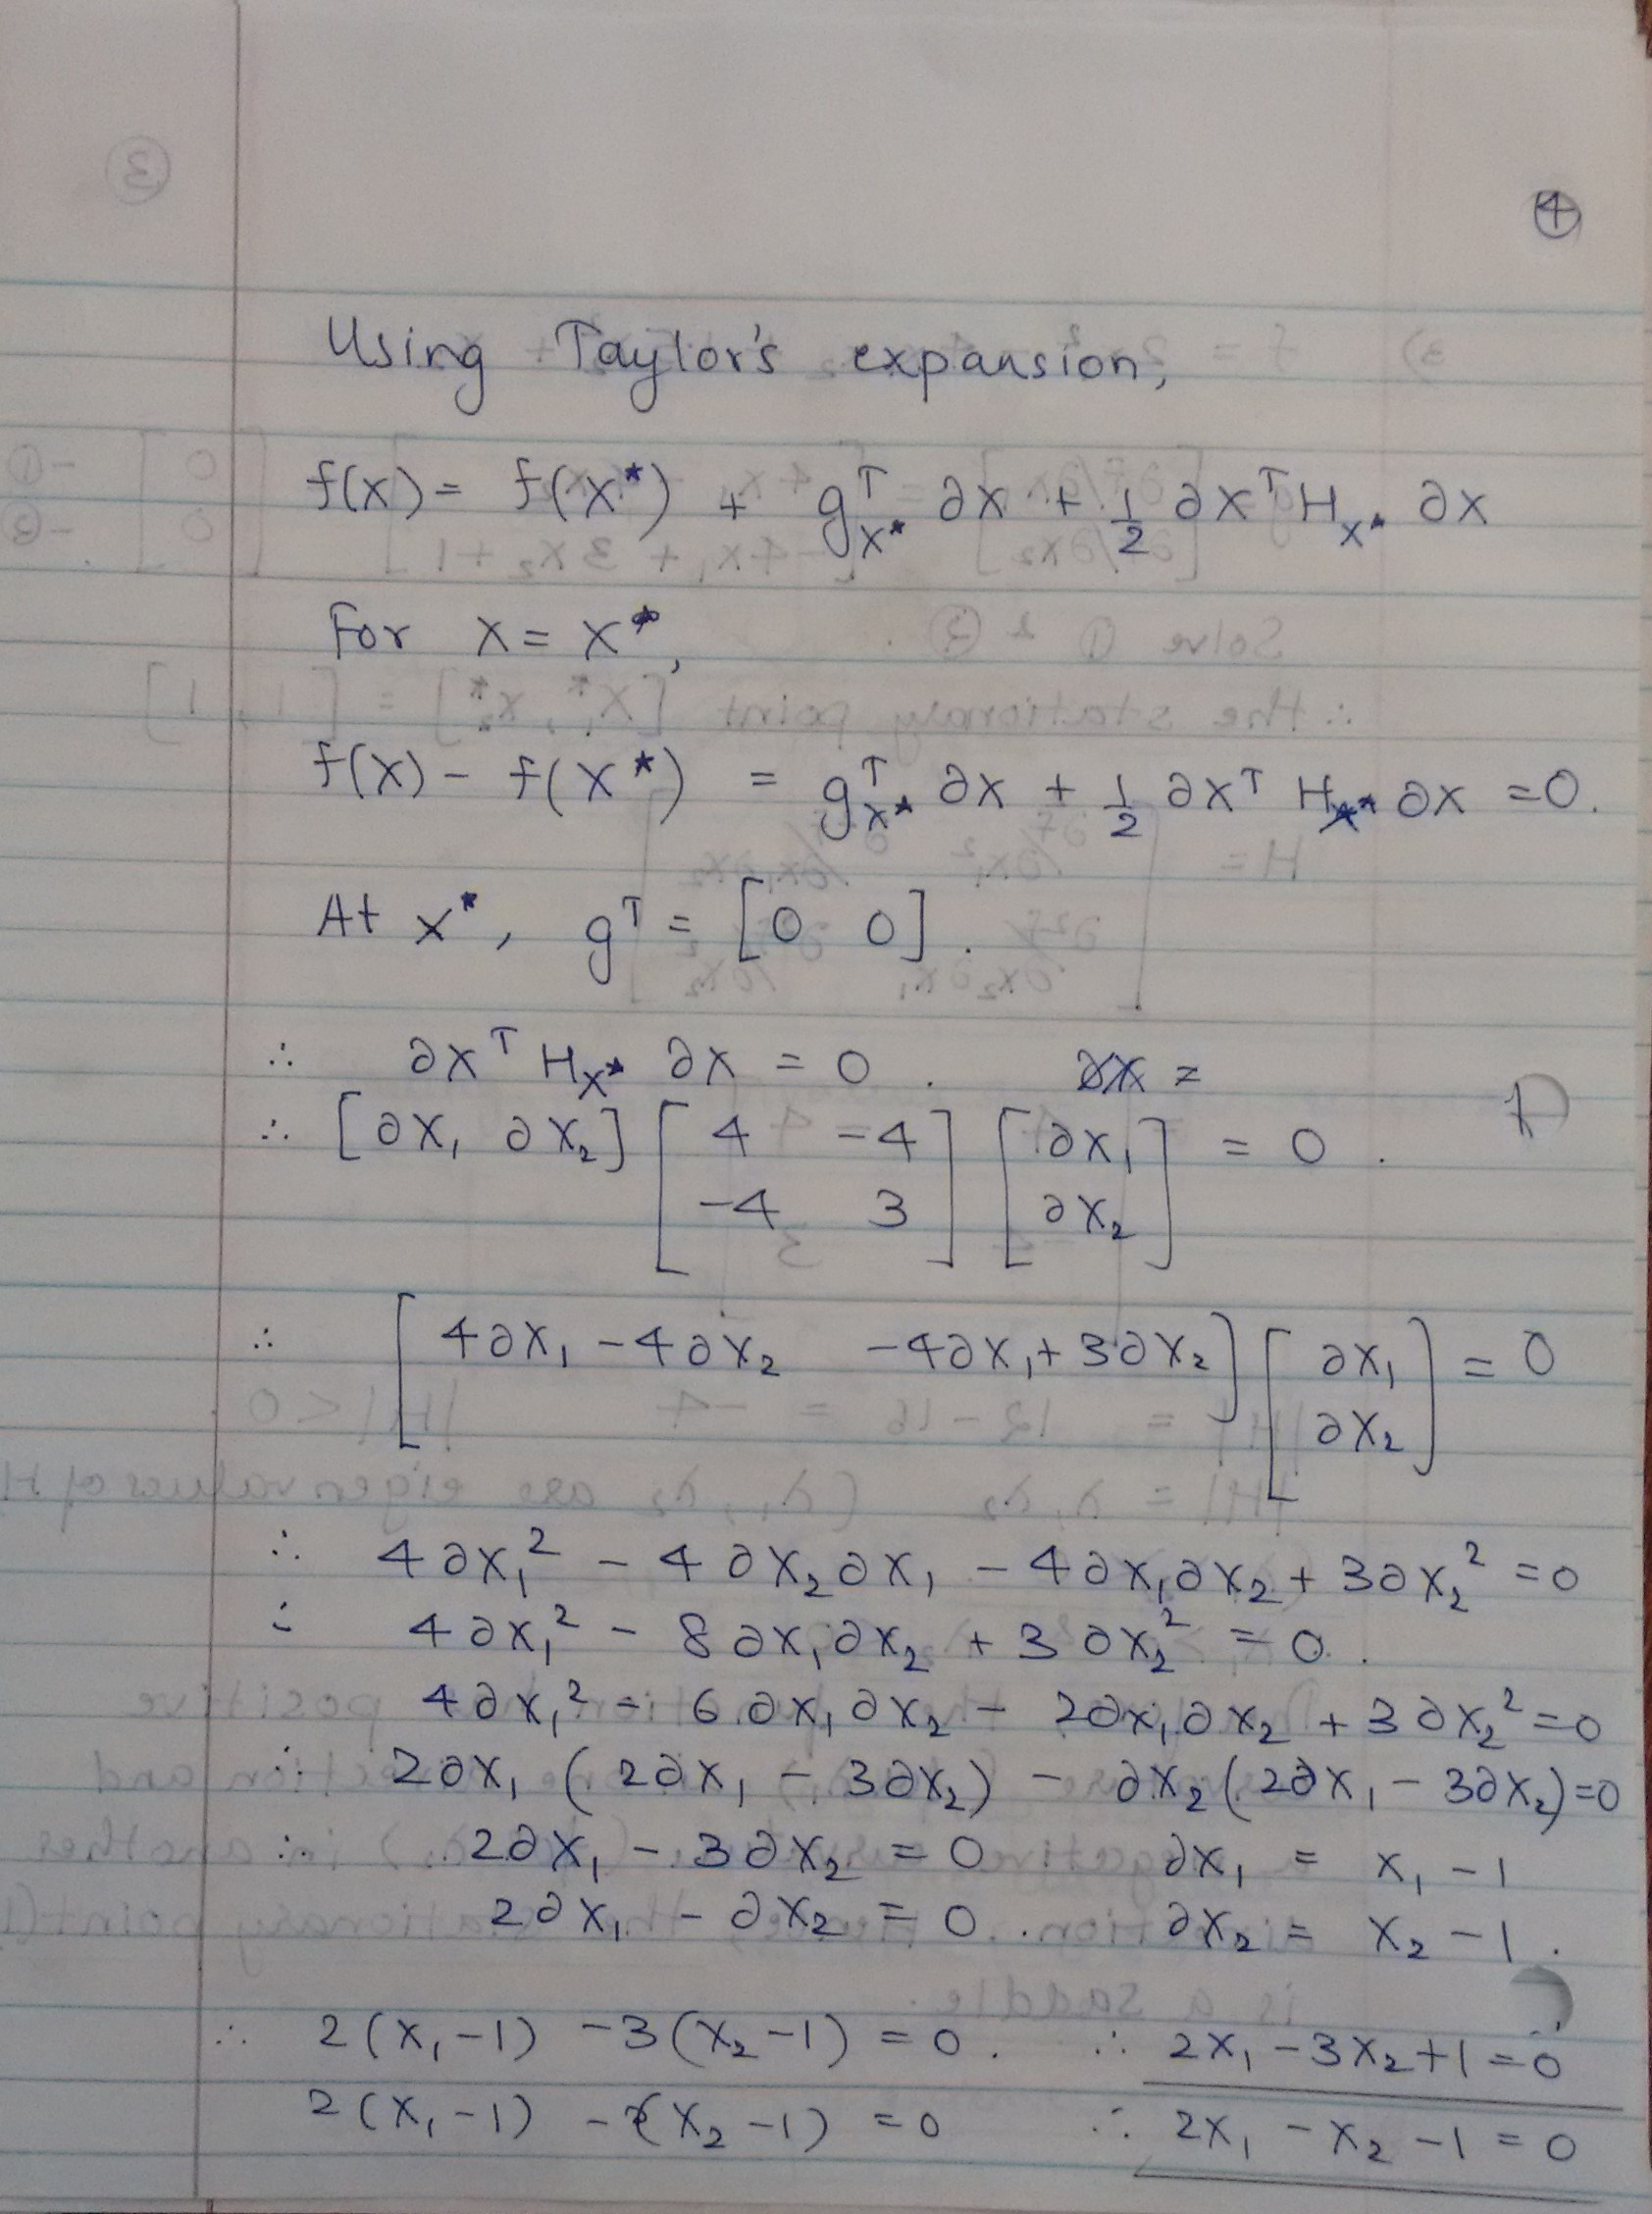 ④
Using Taylor's expansion,
f(x) = f(x*) + gᵀₓ* ∂x + 1/2 ∂xᵀ Hₓ* ∂x
For x = x*,
f(x) - f(x*) = gᵀₓ* ∂x + 1/2 ∂xᵀ Hₓ* ∂x = 0.
At x*, gᵀ = [0 0].
∴ ∂xᵀ Hₓ* ∂x = 0.
∴ [∂x₁ ∂x₂] [4 -4; -4 3] [∂x₁; ∂x₂] = 0.
∴ [4∂x₁ - 4∂x₂ -4∂x₁ + 3∂x₂] [∂x₁; ∂x₂] = 0
∴ 4∂x₁² - 4∂x₂∂x₁ - 4∂x₁∂x₂ + 3∂x₂² = 0
∴ 4∂x₁² - 8∂x₁∂x₂ + 3∂x₂² = 0.
4∂x₁² - 6∂x₁∂x₂ - 2∂x₁∂x₂ + 3∂x₂² = 0
∴ 2∂x₁ (2∂x₁ - 3∂x₂) - ∂x₂ (2∂x₁ - 3∂x₂) = 0
∴ 2∂x₁ - 3∂x₂ = 0 ∂x₁ = x₁ - 1
2∂x₁ - ∂x₂ = 0. ∂x₂ = x₂ - 1.
∴ 2(x₁-1) - 3(x₂-1) = 0. ∴ 2x₁ - 3x₂ + 1 = 0
2(x₁-1) - (x₂-1) = 0 ∴ 2x₁ - x₂ - 1 = 0